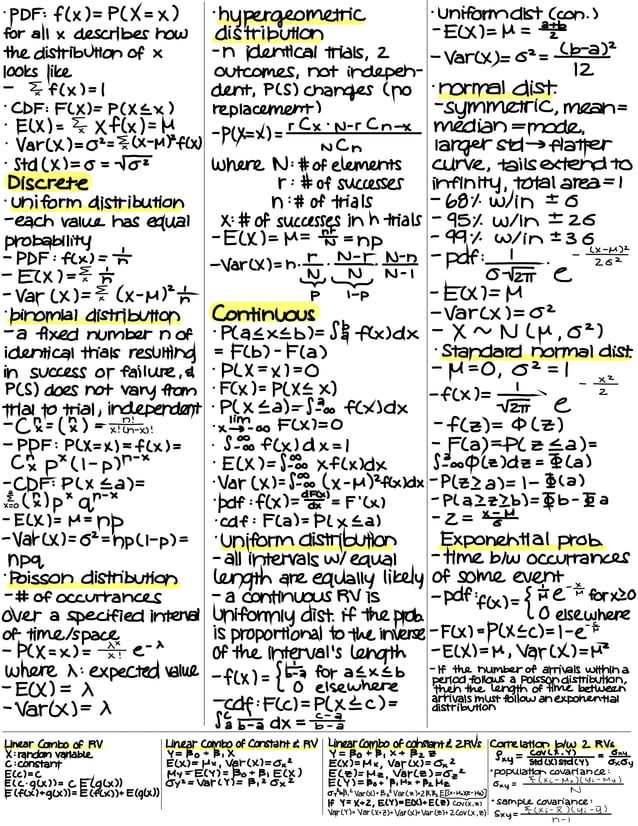 ·PDF: f(x) = P(X=x)
for all x describes how
the distribution of x
looks like
- Σx f(x) = 1
· CDF: F(X) = P(X≤x)
· E(X) = Σx Xf(x) = μ
· Var(X) = σ² = Σx(x-μ)²f(x)
· Std(X) = σ = √σ²
Discrete
· uniform distribution
-each value has equal
probability
- PDF: f(x) = 1/n
- E(X) = Σx 1/n
- Var(X) = Σx (x-μ)² 1/n
· binomial distribution
-a fixed number n of
identical trials resulting
in success or failure, &
P(S) does not vary from
trial to trial, independent
- Cⁿx = (ⁿx) = n!/x!(n-x)!
- PDF: P(X=x) = f(x) =
Cⁿx pˣ(1-p)ⁿ⁻ˣ
-CDF: P(X≤a) =
Σᵃx=0 (ⁿx) pˣ qⁿ⁻ˣ
-E(X) = μ = np
-Var(X) = σ² = np(1-p) =
npq
Poisson distribution
-# of occurrances
over a specified interval
of time/space
- P(X=x) = λˣ/x! e^-λ
where λ: expected value
-E(X) = λ
-Var(X) = λ
·hypergeometric
distribution
-n identical trials, 2
outcomes, not indepen-
dent, P(S) changes (no
replacement)
-P(X=x) = rCx · N-rCn-x / NCn
where N: # of elements
r: # of successes
n: # of trials
x: # of successes in n trials
-E(X) = μ = nr/N = np
-Var(X) = n · r/N · N-r/N · N-n/N-1
p 1-p
Continuous
· P(a≤x≤b) = ∫ᵇₐ f(x)dx
= F(b) - F(a)
· P(X=x) = 0
· F(x) = P(X≤x)
· P(X≤a) = ∫ᵃ-∞ f(x)dx
· lim x→-∞ F(X) = 0
· ∫^∞-∞ f(x)dx = 1
· E(X) = ∫^∞-∞ xf(x)dx
· Var(X) = ∫^∞-∞ (x-μ)²f(x)dx
· pdf: f(x) = dF(x)/dx = F'(x)
· cdf: F(a) = P(X≤a)
· Uniform distribution
-all intervals w/ equal
length are equally likely
- a continuous RV is
uniformly dist. if the prob.
is proportional to the inverse
of the interval's length
-f(x) = { 1/b-a for a≤x≤b
0 elsewhere
-cdf: F(c) = P(X≤c) =
∫ᶜₐ 1/b-a dx = c-a/b-a
·Uniform dist (con.)
- E(X) = μ = a+b/2
- Var(X) = σ² = (b-a)²/12
· normal dist.
-symmetric, mean=
median=mode,
larger std→flatter
curve, tails extend to
infinity, total area=1
- 68% w/in ±σ
- 95% w/in ±2σ
- 99% w/in ±3σ
- pdf: 1/σ√2π e^-(x-μ)²/2σ²
-E(X) = μ
-Var(X) = σ²
- X ~ N(μ, σ²)
· Standard normal dist.
- μ=0, σ²=1
-f(x) = 1/√2π e^-x²/2
- f(z) = Φ(z)
- F(a)=P(z≤a) =
∫ᵃ-∞ Φ(z)dz = Φ(a)
-P(z≥a) = 1-Φ(a)
-P(a≥z≥b) = Φb-Φa
- z = x-μ/σ
Exponential prob.
-time b/w occurrances
of some event
-pdf: f(x) = { 1/μ e^-x/μ for x≥0
0 elsewhere
-F(x) = P(X≤c) = 1-e^-c/μ
-E(X) = μ, Var(X) = μ²
-If the number of arrivals within a
period follows a Poisson distribution,
then the length of time between
arrivals must follow an exponential
distribution
Linear Combo of RV
X: random variable
C: constant
E(c) = C
E(c·g(x)) = C E(g(x))
E(f(x)+g(x)) = E(f(x)) + E(g(x))
Linear Combo of Constant & RV
Y = β₀ + β₁ X
E(X) = μx, Var(X) = σx²
μy = E(Y) = β₀ + β₁ E(X)
σy² = Var(Y) = β₁² σx²
Linear Combo of constant & 2RVs
Y = β₀ + β₁ X + β₂ Z
E(X) = μx, Var(X) = σx²
E(Z) = μz, Var(Z) = σz²
E(Y) = β₀ + β₁μx + β₂ μz
σy² = β₁² Var(X) + β₂² Var(Z) + 2β₁β₂ E[(X-μx)(Z-μz)]
If Y=X+Z, E(Y)=E(X)+E(Z) Cov(X,Z)
Var(Y) = Var(X+Z) = Var(X) + Var(Z) + 2Cov(X,Z)
Correlation b/w 2 RVs
ρxy = Cov(X,Y)/Std(X)Std(Y) = σxy/σxσy
·population covariance:
σxy = Σ(xi-μx)(yi-μy)/N
·sample covariance:
Sxy = Σ(xi-x̄)(yi-ȳ)/n-1